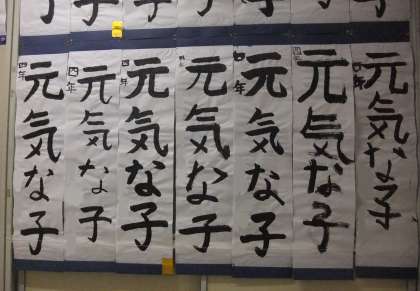 四年 元気な子
四年 元気な子
四年 元気な子
元気な子
四年 元気な子
四年 元気な子
四年 元気な子
子
子
子
子